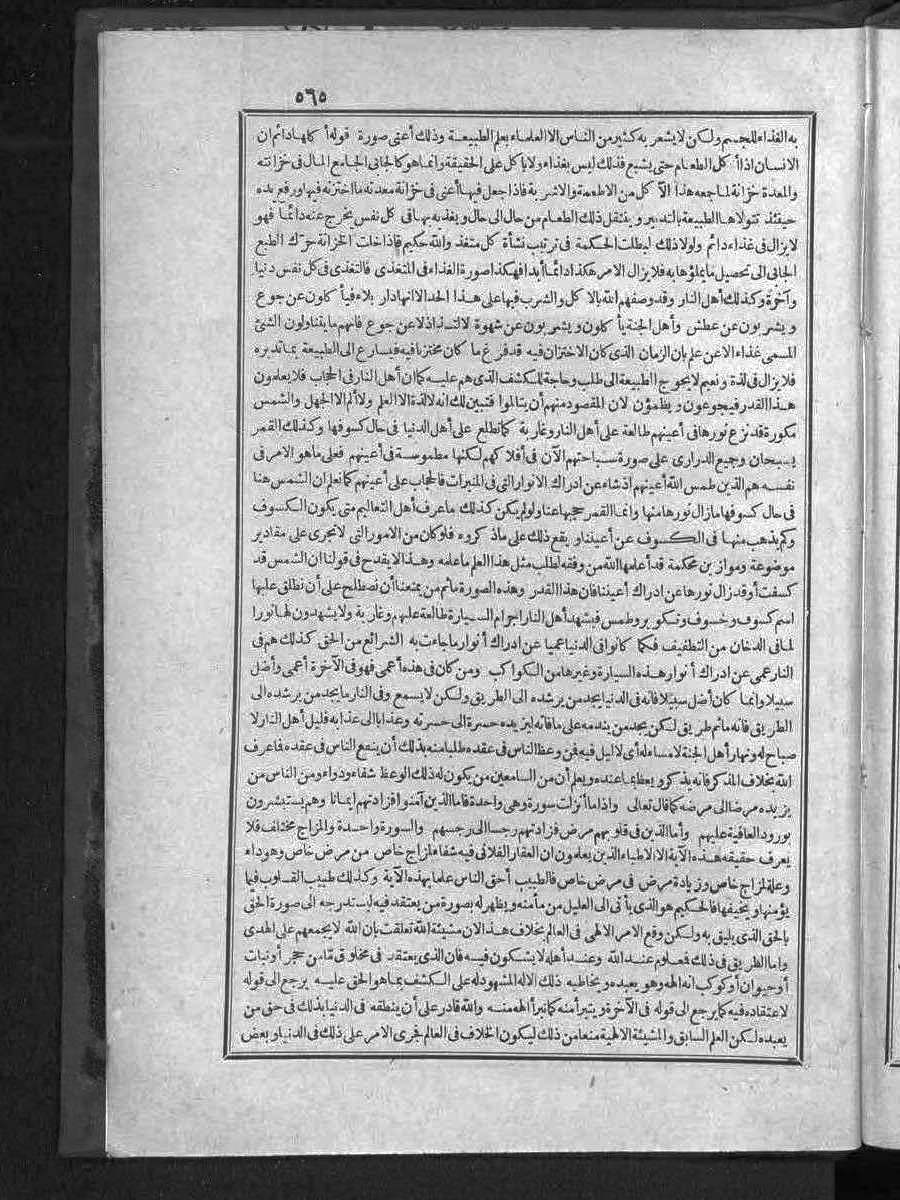 ٥٦٥
به الغذاء للجسم ولكن لا يشعر به كثير من الناس الا العلماء بعلم الطبيعة وذلك أعنى صورة قوله أكلها دائم ان
الانسان اذا أكل الطعام حتى يشبع فذلك ليس بغذاء ولا بأكل على الحقيقة وانما هو كالجانى الجامع المال فى خزانته
والمعدة خزانة لما جمعه هذا الآكل من الاطعمة والاشربة فاذا جعل فيها أعنى فى خزانة معدته ما اختزنه فيها ورفع يده
حينئذ تتولاها الطبيعة بالتدبير وينتقل ذلك الطعام من حال الى حال ويغذيه بها فى كل نفس يخرج عنه دائما فهو
لا يزال فى غذاء دائم ولولا ذلك لبطلت الحكمة فى ترتيب نشأة كل متغذ والله حكيم فاذا خلت الخزانة حرّك الطبع
الجانى الى تحصيل ما يملؤها به فلا يزال الامر هكذا دائما أبدا فهكذا صورة الغذاء فى المتغذى فالتغذى فى كل نفس دنيا
وآخرة وكذلك أهل النار وقد وصفهم الله بالاكل والشرب فيها على هذا الحد الا انها دار بلاء فيأكلون عن جوع
ويشربون عن عطش وأهل الجنة يأكلون ويشربون عن شهوة لالتذاذ لا عن جوع فانهم ما يتناولون الشئ
المسمى غذاء الا عن علم بان الزمان الذى كان الاختزان فيه قد فرغ ما كان مختزنا فيه فيسارع الى الطبيعة بما تدبره
فلا يزال فى لذة ونعيم لا يحوج الطبيعة الى طلب وحاجة للكشف الذى هم عليه كما ان أهل النار فى الحجاب فلا يعلمون
هذا القدر فيجوعون ويظمؤن لان المقصود منهم أن يتألموا فتبين لك انه لا لذة الا العلم ولا ألم الا الجهل والشمس
مكورة قد نزع نورها فى أعينهم طالعة على أهل النار وغاربة كما تطلع على أهل الدنيا فى حال كسوفها وكذلك القمر
يسبحان وجميع الدرارى على صورة سباحتهم الآن فى أفلاكهم لكنها مطموسة فى أعينهم فعلى ما هو الامر فى
نفسه هم الذين طمس الله أعينهم اذ شاء عن ادراك الانوار التى فى المنيرات فالحجاب على أعينهم كما نعلم ان الشمس هنا
فى حال كسوفها ما زال نورها منها وانما القمر حجبها عنا ولو لم يكن كذلك ما عرف أهل التعاليم متى يكون الكسوف
وكم يذهب منها فى الكسوف عن أعيننا ويقع ذلك على ما ذكروه فلو كان من الامور التى لا تجرى على مقادير
موضوعة وموازين محكمة قد أعلمها الله من وفقه لطلب مثل هذا العلم ما علمه وهذا لا يقدح فى قولنا ان الشمس قد
كسفت أو قد زال نورها عن ادراك أعيننا فان هذا القدر وهذه الصورة ما ثم من يمنعنا أن نصطلح على أن نطلق عليها
اسم كسوف وخسوف وتكوير وطمس فيشهد أهل النار اجرام السيارة طالعة عليهم وغاربة ولا يشهدون لها نورا
لما فى الدخان من التطفيف فكما كانوا فى الدنيا عميا عن ادراك أنوار ما جاءت به الشرائع من الحق كذلك هم فى
النار عمى عن ادراك أنوار هذه السيارة وغيرها من الكواكب ومن كان فى هذه أعمى فهو فى الآخرة أعمى وأضل
سبيلا وانما كان أضل سبيلا فانه فى الدنيا يجد من يرشده الى الطريق ولكن لا يسمع وفى النار ما يجد من يرشده الى
الطريق فانه ما ثم طريق لكن يجد من يندمه على ما فاته ليزيده حسرة الى حسرته وعذابا الى عذابه فليل أهل النار لا
صباح له ونهار أهل الجنة لا مساء له أى لا ليل فيه فمن وعظ الناس فى عقده طلبا منه بذلك أن ينفع الناس فى عقده فما عرف
الله بخلاف المذكر فانه يذكر ويعظ بما عنده ويعلم أن من السامعين من يكون له ذلك الوعظ شفاء ودواء ومن الناس من
يزيده مرضا الى مرضه كما قال تعالى واذا ما أنزلت سورة وهى واحدة فاما الذين آمنوا فزادتهم ايمانا وهم يستبشرون
بورود العافية عليهم وأما الذين فى قلوبهم مرض فزادتهم رجسا الى رجسهم والسورة واحدة والمزاج مختلف فلا
يعرف حقيقة هذه الآية الا الاطباء الذين يعلمون ان العقار الفلانى فيه شفاء لمزاج خاص من مرض خاص وهو داء
وعلة لمزاج خاص وزيادة مرض فى مرض خاص فالطبيب أحق الناس علما بهذه الآية وكذلك طبيب القلوب فيما
يؤمنها ويخيفها فالحكيم هو الذى يأتى الى العليل من مأمنه ويظهر له بصورة من يعتقد فيه ليستدرجه الى صورة الحق
بالحق الذى يليق به ولكن وقع الامر الالهى فى العالم بخلاف هذا لان مشيئة الله تعلقت بان الله لا يجمعهم على الهدى
واما الطريق فى ذلك فمعلوم عند الله وعند أهله لا يشكون فيه فان الذى يعتقد فى مخلوق تما من حجر أو نبات
أو حيوان أو كوكب انه الهه وهو يعبده ويخاطبه ذلك الاله المشهود له على الكشف بما هو الحق عليه يرجع الى قوله
لاعتقاده فيه كما يرجع الى قوله فى الآخرة ويتبرأ منه كما تبرأ الهه منه والله قادر على أن ينطقه فى الدنيا بذلك فى حق من
يعبده لكن العلم السابق والمشيئة الالهية منعا من ذلك ليكون الخلاف فى العالم فجرى الامر على ذلك فى الدنيا وبعض